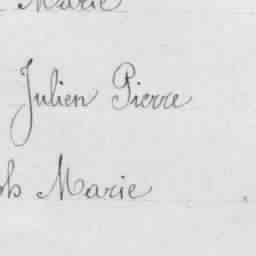 Marie
Julien Pierre
ph Marie